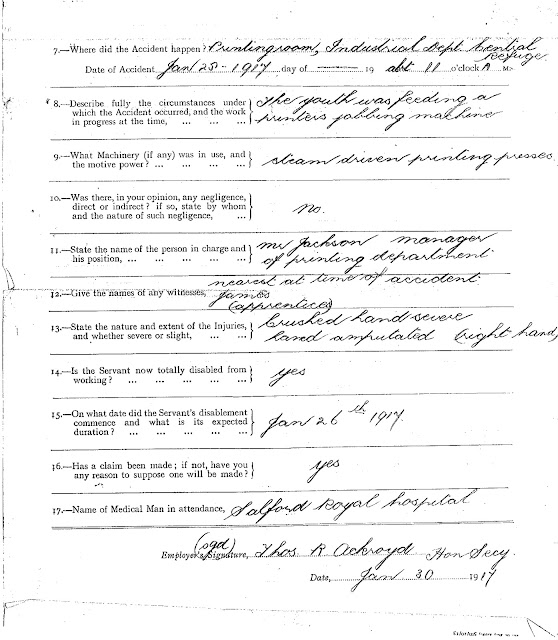 7.—Where did the Accident happen? Printing room, Industrial Dept. Central Refuge
Date of Accident Jan 25 - 1917 day of ——— 19 abt 11 o'clock A M.
8.—Describe fully the circumstances under The youth was feeding a
which the Accident occurred, and the work printers jobbing machine
in progress at the time, ... ... ...
9.—What Machinery (if any) was in use, and steam driven printing presses
the motive power? ... ... ... ...
10.—Was there, in your opinion, any negligence,
direct or indirect? if so, state by whom no.
and the nature of such negligence, ...
11.—State the name of the person in charge and Mr Jackson manager
his position, ... ... ... ... ... of printing department
nearest at time of accident
12.—Give the names of any witnesses, James
(apprentices)
13.—State the nature and extent of the Injuries, Crushed hand severe
and whether severe or slight, ... ... ... hand amputated (right hand)
14.—Is the Servant now totally disabled from yes
working? ... ... ... ... ...
15.—On what date did the Servant's disablement
commence and what is its expected Jan 26th 1917.
duration? ... ... ... ... ...
16.—Has a claim been made; if not, have you yes
any reason to suppose one will be made?
17.—Name of Medical Man in attendance, Salford Royal hospital
(sgd)
Employer's Signature, Thos. R Ackroyd Hon Secy.
Date, Jan 30 1917